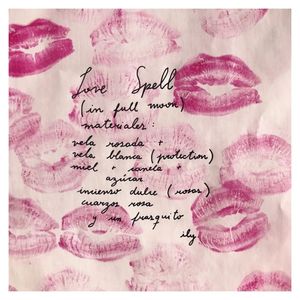 Love Spell
(in full moon)
materiales:
vela rosada +
vela blanca (protection)
miel + canela +
azúcar
incienso dulce (rosas)
cuarzos rosa
y un frasquito
ily